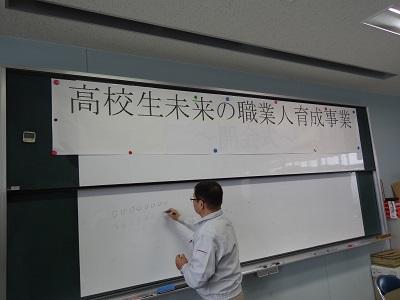 高校生未来の職業人育成事業